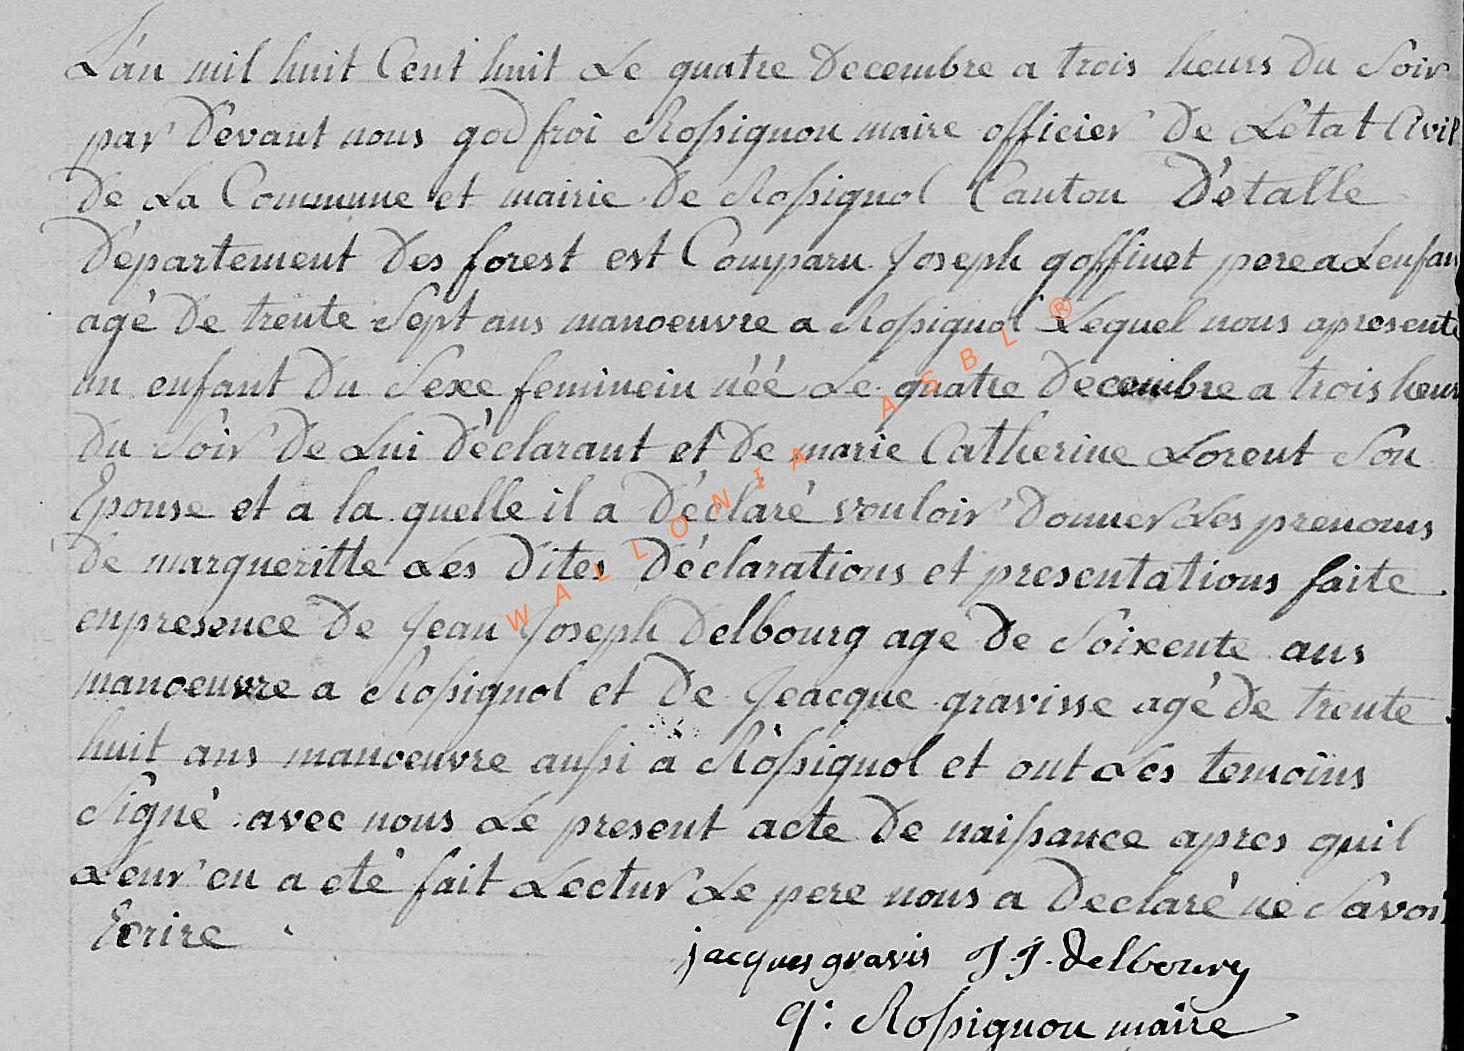 L'an mil huit Cent huit Le quatre Decembre a trois heurs Du Soir
par Devant nous godfroi Rossignon maire officier De Letat Civil
De La Commune et mairie De Rossignol Canton D'étalle
Département Des forest est Comparu Joseph goffinet pere a Lenfan
agé De trente Sept ans manoeuvre a Rossignol Lequel nous apresenté
un enfant Du Sexe feminein néé Le quatre Decembre a trois heur
Du Soir De Lui Déclarant et De marie Catherine Lorent Son
Epouse et a la quelle il a Déclaré vouloir Donner Les prenoms
De margueritte Les Dites Déclarations et presentations faite
enpresence De Jean Joseph Delbourg agé De Soixente ans
manoeuvre a Rossignol et De Jeacque gravisse agé De trente
huit ans manoeuvre aussi a Rossignol et ont Les temoins
Signé avec nous Le present acte De naissance apres quil
Leur en a été fait Lectur Le pere nous a Declaré ne Savoir
Ecrire
jacques gravis J. J. Delbourg
g: Rossignon maire
WALLONIA ASBL ®